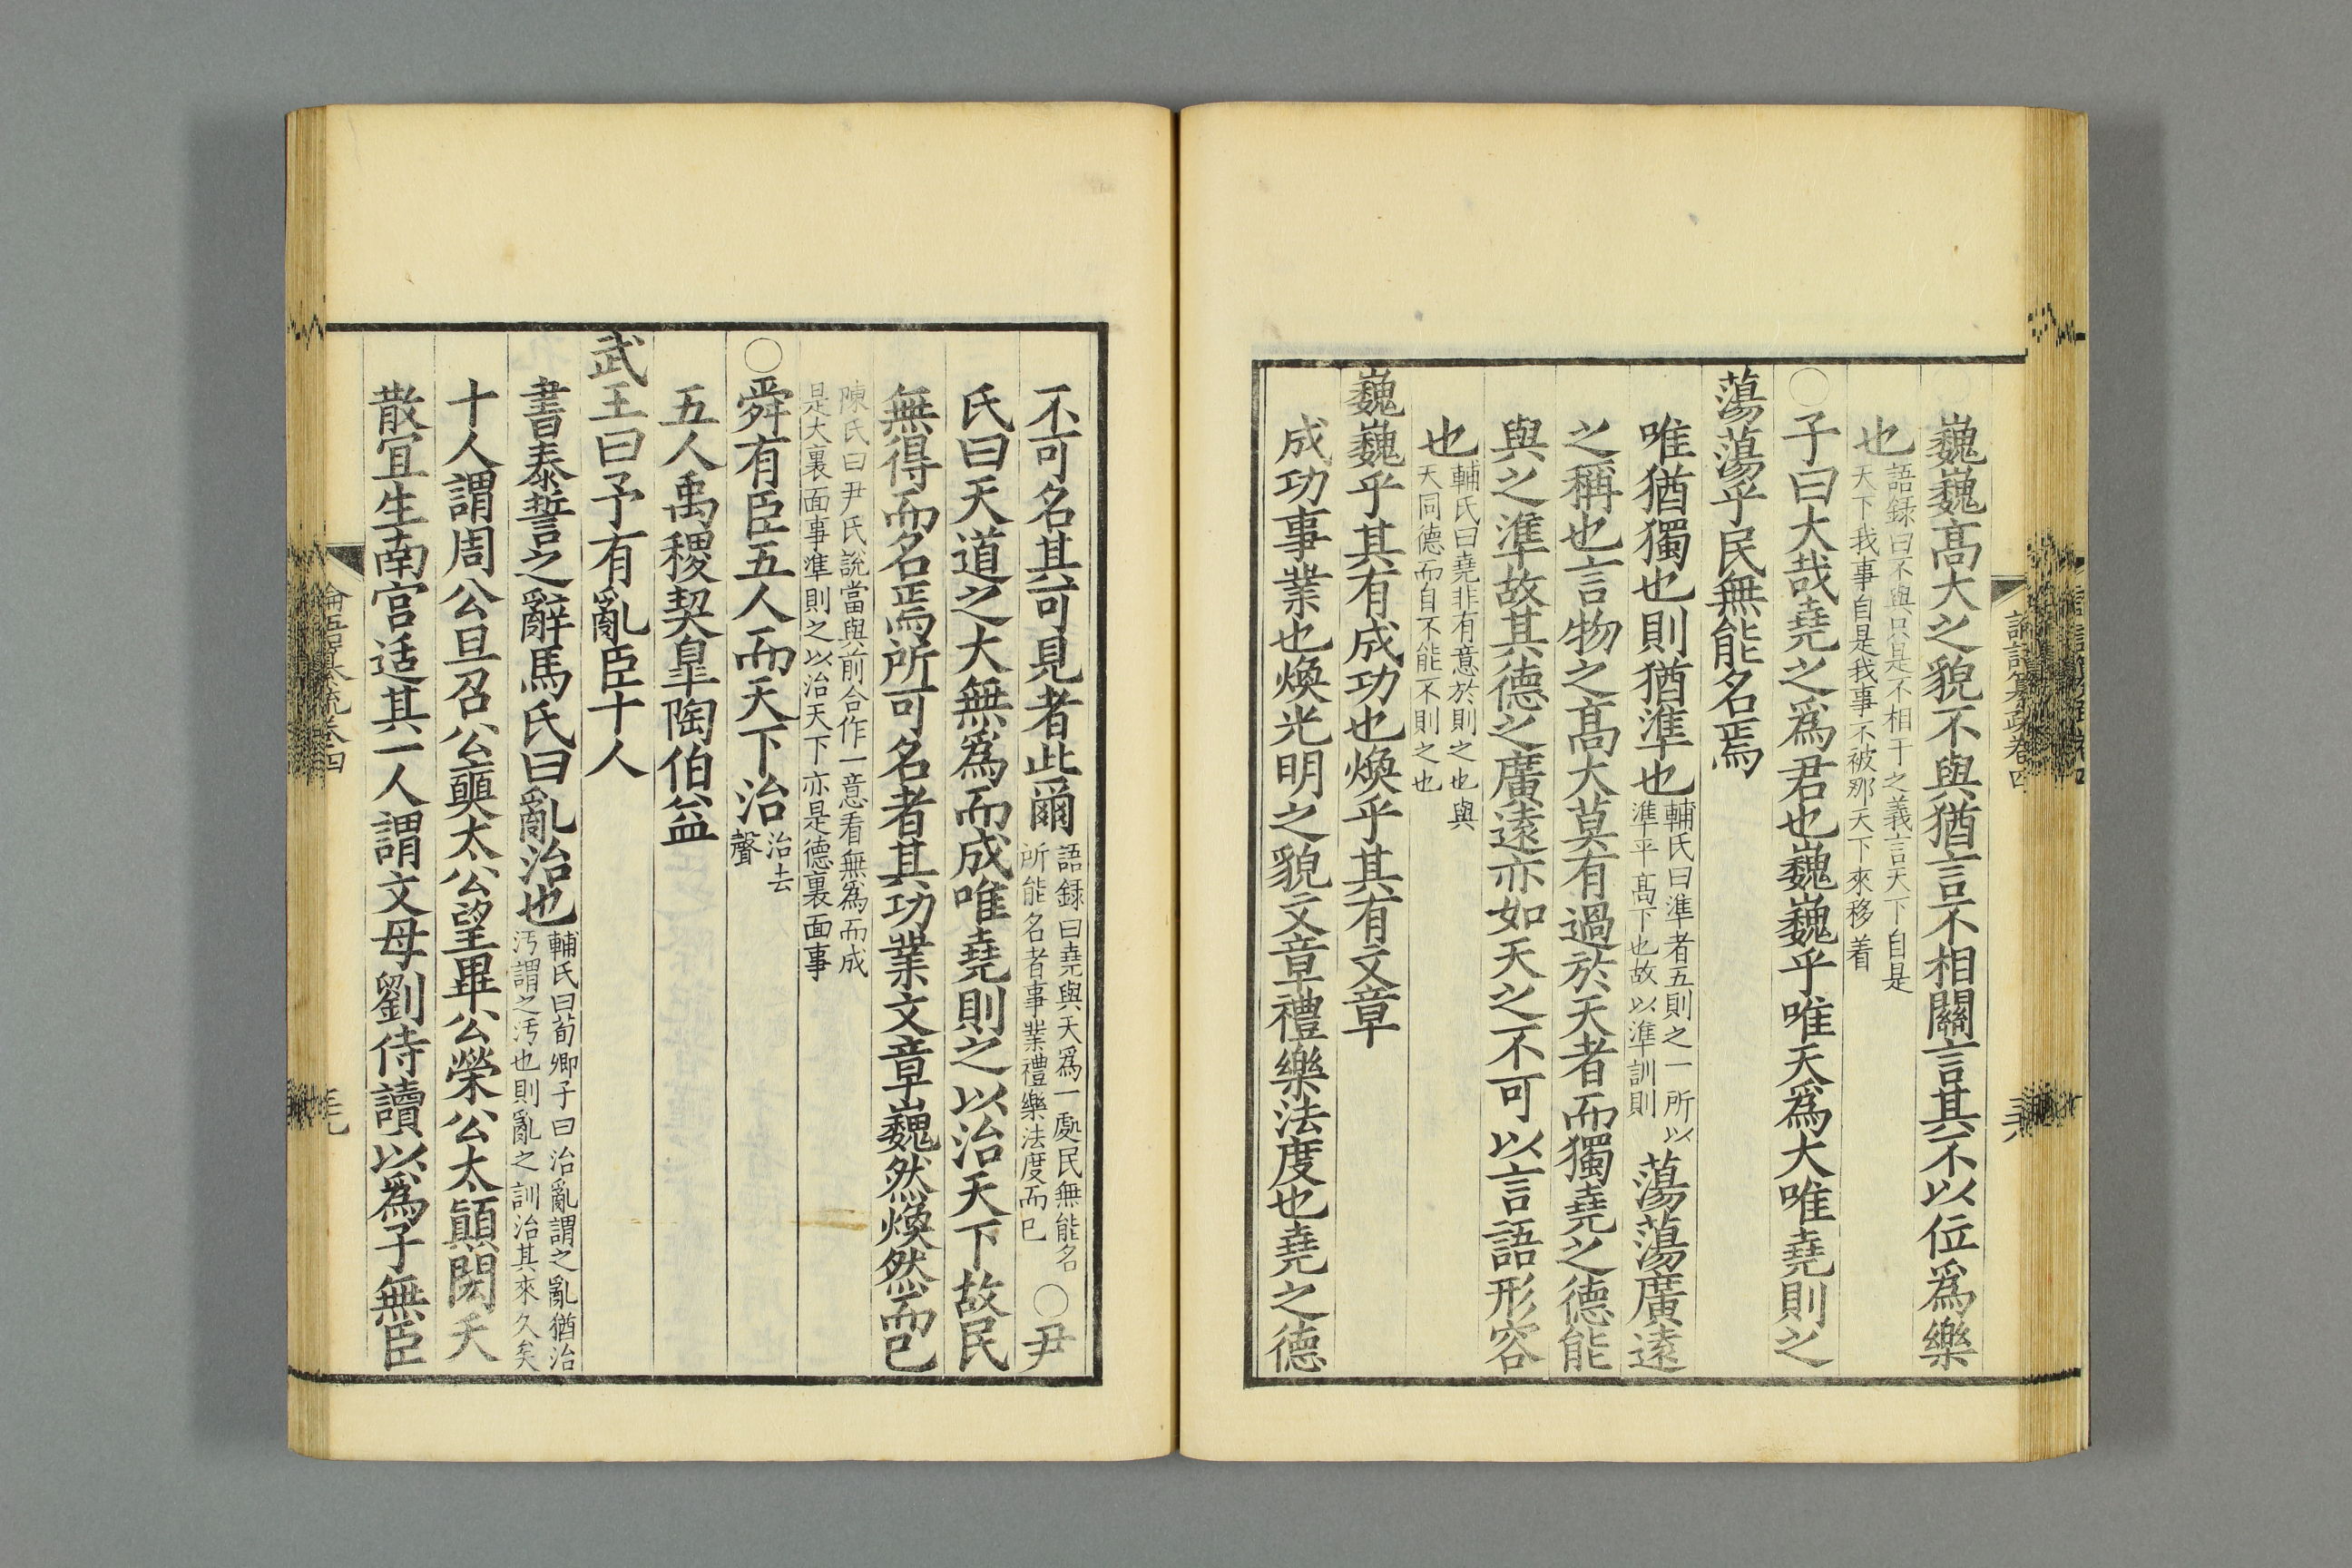 巍巍髙大之貌不與猶言不相關言其不以位爲樂
也語録曰不與只是不相干之義言天下自是
天下我事自是我事不被那天下來移着
○子曰大哉堯之爲君也巍巍乎唯天爲大唯堯則之
蕩蕩乎民無能名焉
唯猶獨也則猶準也輔氏曰準者五則之一所以
準平髙下也故以準訓則蕩蕩廣遠
之稱也言物之髙大莫有過於天者而獨堯之德能
與之準故其德之廣遠亦如天之不可以言語形容
也輔氏曰堯非有意於則之也與
天同德而自不能不則之也
巍巍乎其有成功也煥乎其有文章
成功事業也煥光明之貌文章禮樂法度也堯之德
不可名其可見者此爾語録曰堯與天爲一處民無能名
所能名者事業禮樂法度而已○尹
氏曰天道之大無爲而成唯堯則之以治天下故民
無得而名焉所可名者其功業文章巍然煥然而已
陳氏曰尹氏說當與前合作一意看無爲而成
是大裏面事準則之以治天下亦是德裏面事
○舜有臣五人而天下治治去
聲
五人禹稷契臯陶伯益
武王曰予有亂臣十人
書泰誓之辭馬氏曰亂治也輔氏曰荀卿子曰治亂謂之亂猶治
汚謂之汚也則亂之訓治其來久矣
十人謂周公旦召公奭太公望畢公榮公太顚閎夭
散宜生南宮适其一人謂文母劉侍讀以爲子無臣